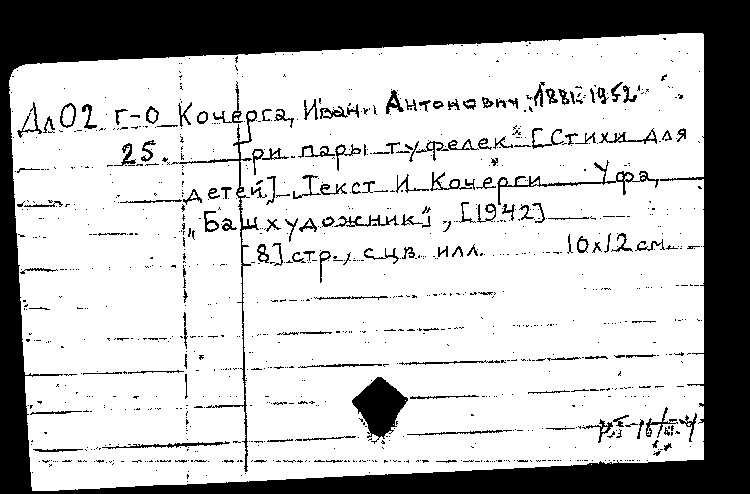 Дл02 г-о Кочерга, Иван Антонович 1881-1952
25. Три пары туфелек [Стихи для
детей]. Текст И Кочерги Уфа,
„Башхудожник", [1942]
[8] стр., с цв. илл. 10х12 см.